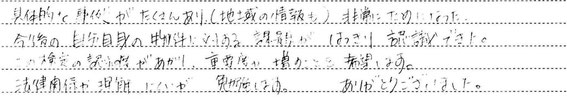 具体的な事例がたくさんあり、(地域の情報も)非常にためになった。
今後の自分自身の物件に対する課題がはっきり認識できた。
この検定の認知度があがり、重要度が増すことを希望します。
法律関係が理解しにくいが勉強します。ありがとうございました。